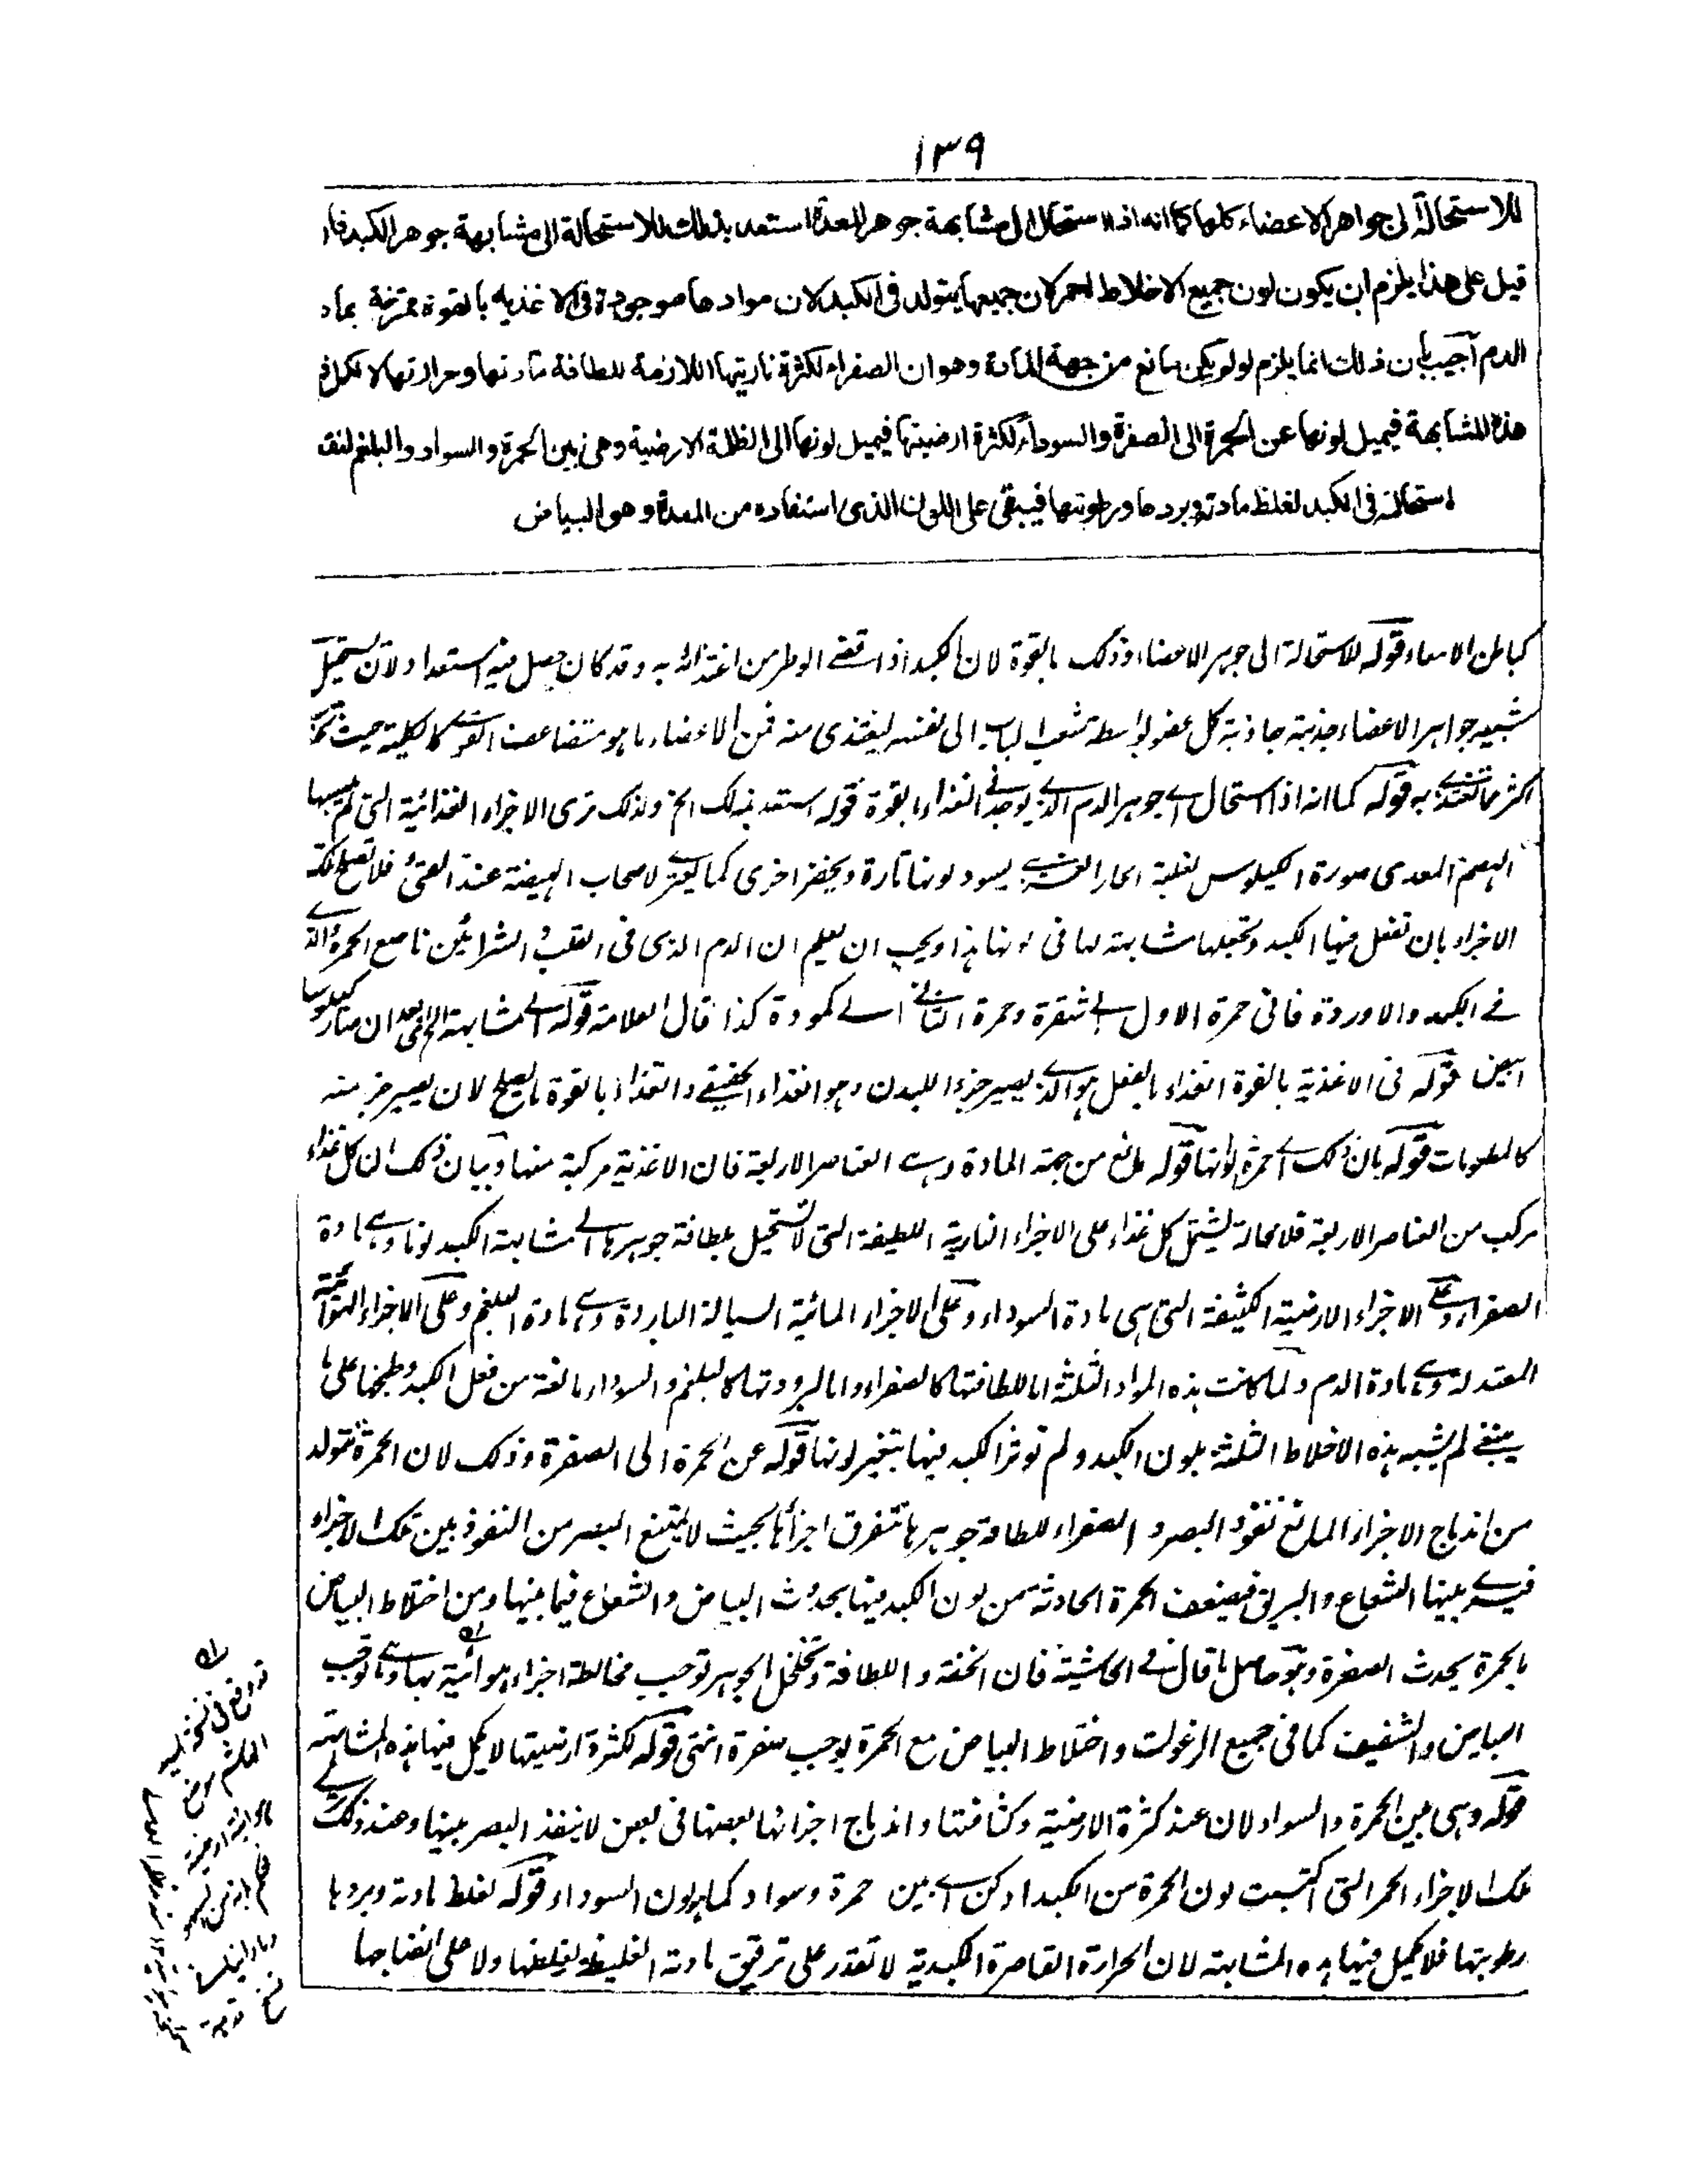 ١٣٩
للاستحالة الى جواهر الاعضاء كلها كما انه اذا استحال الى مشابهة جوهر المعدة استعد بذلك للاستحالة الى مشابهة جوهر الكبد فان
قيل على هذا يلزم ان يكون لون جميع الاخلاط احمر لان جميعها يتولد فى الكبد لان موادها موجودة فى الاغذيه بالقوة ممتزجة بماد
الدم اجيب بان ذلك انما يلزم لو لم يكن مانع من جهة المادة وهو ان الصفراء لكثرة ناريتها اللازمة للطافة مادتها وحرارتها لا تكمل
هذه المشابهة فيميل لونها عن الحمرة الى الصفرة والسوداء لكثرة ارضيتها فيميل لونها الى الظلمة الارضية وهى بين الحمرة والسواد والبلغم لنقـ
استحالته فى الكبد لغلظ مادته وبردها ورطوبتها فيبقى على اللون الذى استفاده من المعدة وهو البياض
كباطن الامعاء قوله للاستحالة الى جوهر الاعضاء وذلك بالقوة لان الكبد اذا قضے الوطر من اغتذائه به وقد كان حصل فيه استعداد لان يستحيل
شبيه جواهر الاعضاء جذبته جاذبة كل عضو بواسطة شعب الباب الى نفسه ليغتذى منه فمن الاعضاء ما هو متضاعف القوے كالكلية حيث
اكثر مما تغتذے به قوله كما انه اذا استحال اے جوهر الدم الذے يوجد فے الغذاء بالقوة قوله استعد بذلك الخ ولذلك ترى الاجزاء الغذائية التى لم
الهضم المعدى صورة الكيلوس لغلبة الحار يسود لونها تارة ويخضر اخرى كما يعترے لاصحاب الهيضة عند القئ فلا تصلح تلك
الاجزاء بان تفعل فيها الكبد وتجعلها مشابهة لها فى لونها هذا ويجب ان يعلم ان الدم الذى فى القلب والشرائين ناصع الحمرة والذے
فے الكبد والاوردة قانى حمرة الاول الے شقرة وحمرة الثانے الے كمودة كذا قال العلامة قوله الے مشابهة الخ اى بعد ان صار كيلوسا
ابيض قوله فى الاغذية بالقوة الغذاء بالفعل هو الذے يصير جزءا للبدن وهو الغذاء الحقيقے والغذاء بالقوة ما يصلح لان يصير جزء منه
كالمطعومات قوله بان ذلك اے حمرة لونها قوله مانع من جهة المادة وهے العناصر الاربعة فان الاغذية مركبة منها وبيان ذلك ان كل غذاء
مركب من العناصر الاربعة فلا محالة يشتمل كل غذاء على الاجزاء النارية اللطيفة التى لا تستحيل بلطافة جوهرها الے مشابهة الكبد لونا وهے مادة
الصفراء وعلے الاجزاء الارضية الكثيفة التى هى مادة السوداء وعلى الاجزاء المائية السيالة الباردة وهے مادة البلغم وعلى الاجزاء الهوائية
المعتدلة وهے مادة الدم ولما كانت هذه المواد الثلثة اما للطافتها كالصفراء واما لبرودتها كالبلغم والسوداء مانعة من فعل الكبد وطبخها على ما
ينبغے لم يشبه هذه الاخلاط الثلثة بلون الكبد ولم توثر الكبد فيها بتغير لونها قوله عن الحمرة الى الصفرة وذلك لان الحمرة تتولد
من اندماج الاجزاء المانع نفوذ البصر و الصفراء للطافة جوهرها تتفرق اجزائها بحيث لا يمتنع البصر من النفوذ بين تلك الاجزاء
فيسرے بينها الشعاع والبريق فيضعف الحمرة الحادثة من لون الكبد فيها بحدوث البياض والشعاع فيما بينها ومن اختلاط البياض
بالحمرة يحدث الصفرة وهو حاصل ما قال فے الحاشية فان الخفة واللطافة وتخلخل الجوهر توجب مخالطة اجزاء هوائية بها وهے توجب
البياض والشفيف كما فى جميع الرغوات واختلاط البياض مع الحمرة يوجب صفرة انتهى قوله لكثرة ارضيتها لا يكمل فيها هذه المشابهة
قوله وهى بين الحمرة والسواد لان عند كثرة الارضية وكثافتها واندماج اجزائها بعضها فى بعض لا ينفذ البصر بينها وعند ذلك
تلك الاجزاء الحمر التى اكتسبت لون الحمرة من الكبد ادكن اے بين حمرة وسواد كما هو لون السوداء قوله لغلظ مادته وبردها
رطوبتها فلا يكمل فيها هذه المشابهة لان الحرارة القاصرة الكبدية لا تقدر على ترقيق مادته الغليظة لغلظها ولا على انضاجها